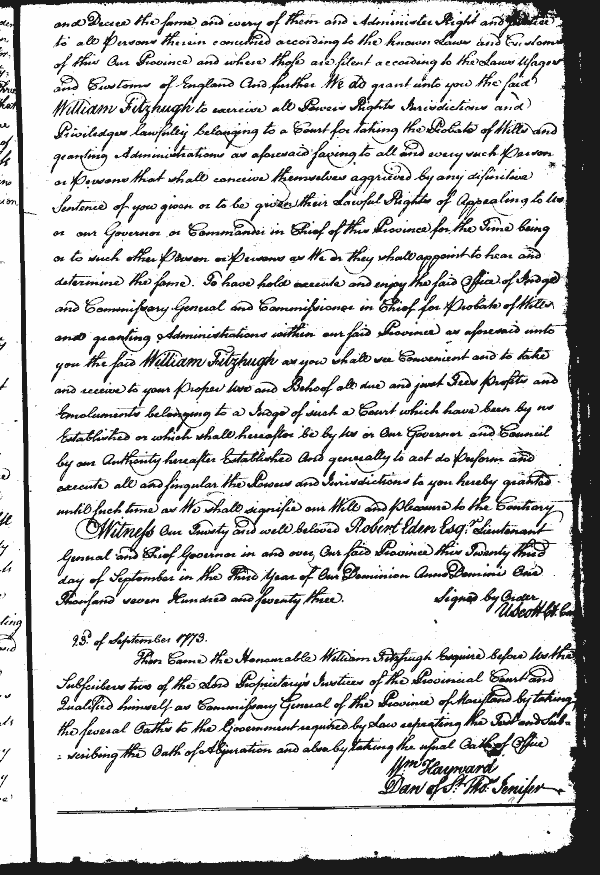 and Decree the same and every of them and Administer Right and Justice
to all Persons therein concerned according to the known Laws and Customs
of this Our Province and where those are silent according to the Laws Usages
and Customs of England And further We do grant unto you the said
William Fitzhugh to exercise all Powers Rights Jurisdictions and
Priviledges lawfully belonging to a Court for taking the Probate of Wills and
granting Administrations as aforesaid saving to all and every such Person
or Persons that shall conceive themselves aggrieved by any difinitive
Sentence of you given or to be given their Lawful Rights of Appealing to Us
or our Governor or Commander in Chief of this Province for the Time being
or to such other Person or Persons as We or they shall appoint to hear and
determine the same. To have hold execute and enjoy the said Office of Judge
and Commissary General and Commissioner in Chief for Probate of Wills
and granting Administrations within our said Province as aforesaid unto
you the said William Fitzhugh as you shall see Convenient and to take
and receive to your proper Use and Behoof all due and just Fees Profits and
Emoluments belonging to a Judge of such a Court which have been by us
Established or which shall hereafter be by Us or Our Governor and Council
by our Authority hereafter Established And generally to act do perform and
execute all and singular the Powers and Jurisdictions to you hereby granted
until such time as We shall signifie our Will and pleasure to the Contrary
Witness Our Trusty and well beloved Robert Eden Esqr. Lieutenant
General and Chief Governor in and over Our said Province this Twenty third
day of September in the Third Year of Our Dominion Anno Domini One
Thousand seven Hundred and seventy three. Signed by Order
U Scott Cl. Con
23d. of September 1773.
Then Came the Honourable William Fitzhugh Esquire before Us the
Subscribers two of the Lord Proprietary's Justices of the Provincial Court and
Qualified himself as Commissary General of the Province of Maryland by taking
the several Oaths to the Government required by Law repeating the Test and Sub-
=scribing the Oath of Abjuration and also by taking the usual Oath of Office
Wm Hayward
Dan of St. Thos. Jenifer